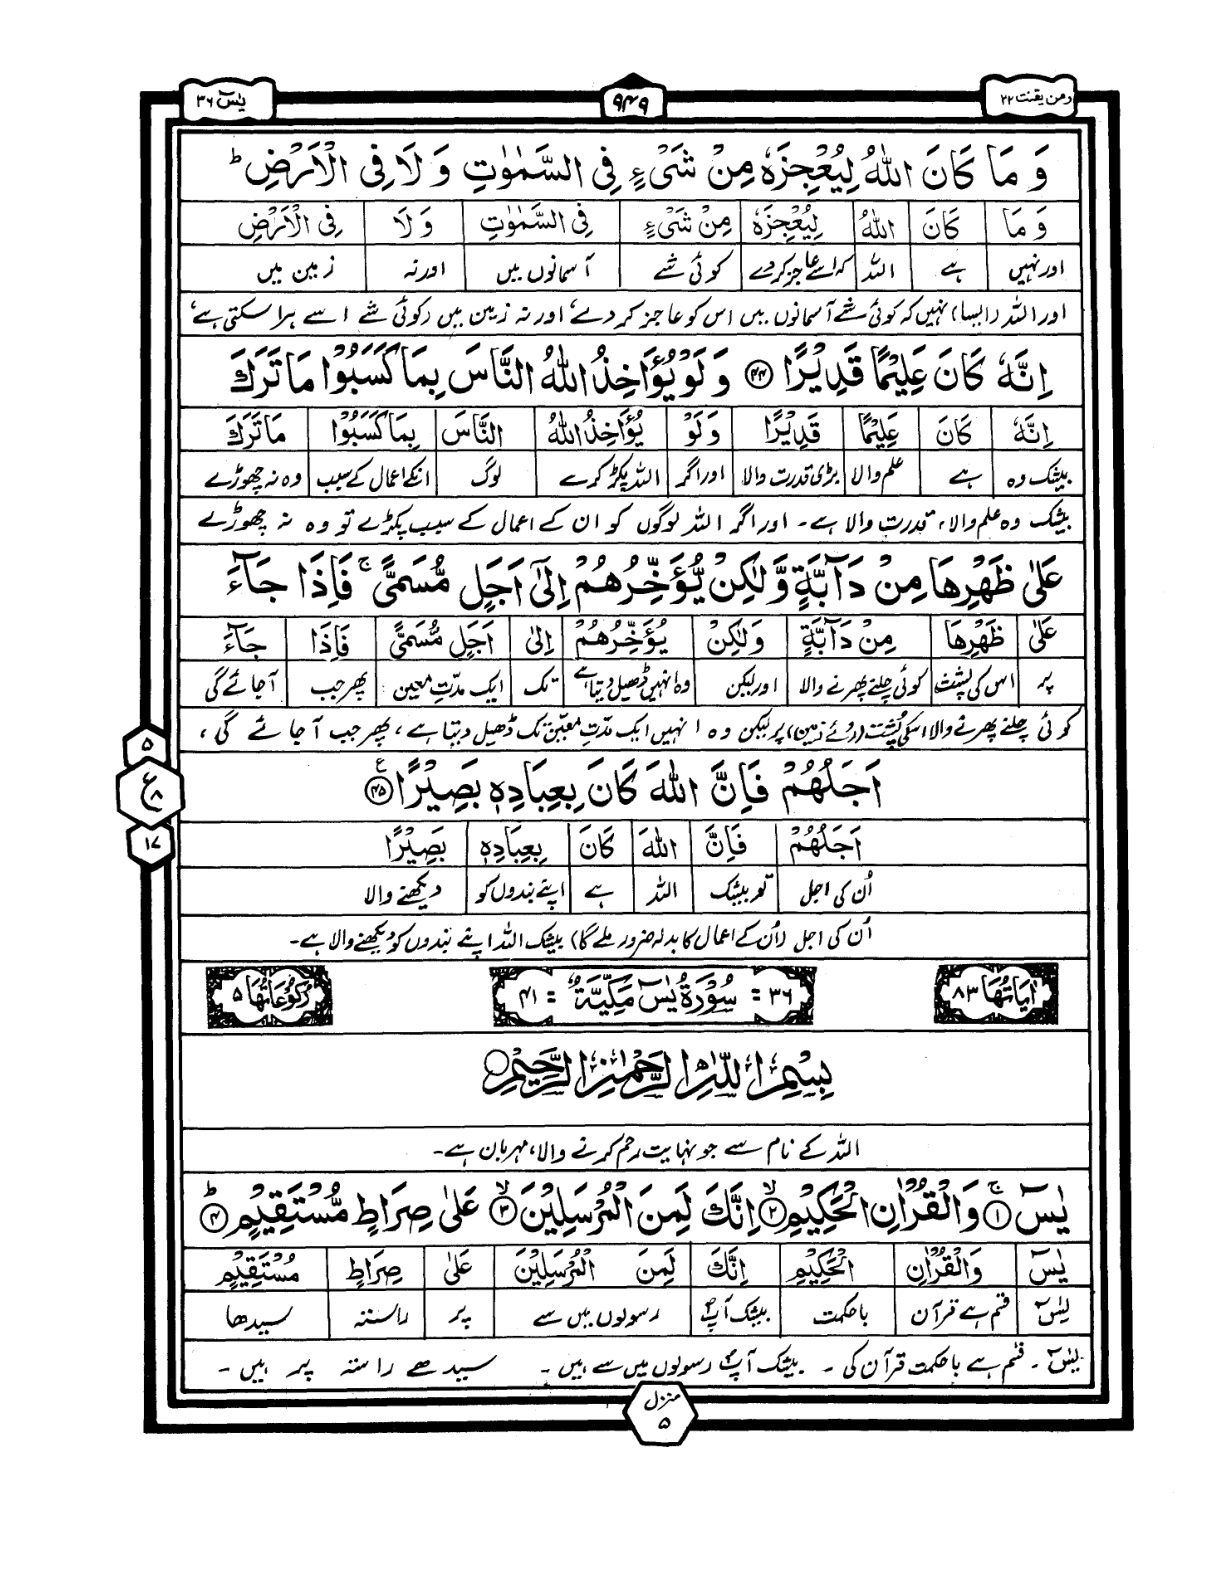 ومن یقنت ۲۲
۹۴۹
یٰسٓ ۳۶
وَ مَا كَانَ اللّٰهُ لِیُعْجِزَهٗ مِنْ شَیْءٍ فِی السَّمٰوٰتِ وَ لَا فِی الْاَرْضِ ؕ
وَ مَا | كَانَ | اللّٰهُ | لِیُعْجِزَهٗ | مِنْ شَیْءٍ | فِی السَّمٰوٰتِ | وَ لَا | فِی الْاَرْضِ
اور نہیں | ہے | اللہ | کہ اسے عاجز کر دے | کوئی شے | آسمانوں میں | اور نہ | زمین میں
اور اللہ (ایسا) نہیں کہ کوئی شے آسمانوں میں اس کو عاجز کر دے، اور نہ زمین میں (کوئی شے اسے ہرا سکتی ہے،
اِنَّهٗ كَانَ عَلِیْمًا قَدِیْرًا ﴿۴۴﴾ وَ لَوْ یُؤَاخِذُ اللّٰهُ النَّاسَ بِمَا كَسَبُوْا مَا تَرَكَ
اِنَّهٗ | كَانَ | عَلِیْمًا | قَدِیْرًا | وَ لَوْ | یُؤَاخِذُ اللّٰهُ | النَّاسَ | بِمَا كَسَبُوْا | مَا تَرَكَ
بیشک وہ | ہے | علم والا | بڑی قدرت والا | اور اگر | اللہ پکڑ کرے | لوگ | انکے اعمال کے سبب | وہ نہ چھوڑے
بیشک وہ علم والا، قدرت والا ہے۔ اور اگر اللہ لوگوں کو ان کے اعمال کے سبب پکڑے تو وہ نہ چھوڑے
عَلٰی ظَهْرِهَا مِنْ دَآبَّةٍ وَّ لٰكِنْ یُّؤَخِّرُهُمْ اِلٰۤی اَجَلٍ مُّسَمًّی ۚ فَاِذَا جَآءَ
عَلٰی | ظَهْرِهَا | مِنْ دَآبَّةٍ | وَ لٰكِنْ | یُؤَخِّرُهُمْ | اِلٰی | اَجَلٍ مُّسَمًّی | فَاِذَا | جَآءَ
پر | اس کی پشت | کوئی چلنے پھرنے والا | اور لیکن | وہ انہیں ڈھیل دیتا ہے | تک | ایک مدّتِ معین | پھر جب | آ جائے گی
کوئی چلنے پھرنے والا اسکی پُشت (روئے زمین) پر لیکن وہ انہیں ایک مدّتِ معیّن تک ڈھیل دیتا ہے، پھر جب آ جائے گی،
۵
ع ۸
۱۷
اَجَلُهُمْ فَاِنَّ اللّٰهَ كَانَ بِعِبَادِهٖ بَصِیْرًا ﴿۴۵﴾ ع
اَجَلُهُمْ | فَاِنَّ | اللّٰهَ | كَانَ | بِعِبَادِهٖ | بَصِیْرًا
اُن کی اجل | تو بیشک | اللہ | ہے | اپنے بندوں کو | دیکھنے والا
اُن کی اجل (اُن کے اعمال کا بدلہ ضرور ملے گا) بیشک اللہ اپنے بندوں کو دیکھنے والا ہے۔
اٰیَاتُهَا ۸۳
۳۶ = سُوْرَةُ یٰسٓ مَكِّیَّةٌ = ۴۱
رُكُوْعَاتُهَا ۵
بِسْمِ اللّٰهِ الرَّحْمٰنِ الرَّحِیْمِ
اللہ کے نام سے جو نہایت رحم کرنے والا، مہربان ہے۔
یٰسٓ ۚ﴿۱﴾ وَ الْقُرْاٰنِ الْحَكِیْمِ ۙ﴿۲﴾ اِنَّكَ لَمِنَ الْمُرْسَلِیْنَ ۙ﴿۳﴾ عَلٰی صِرَاطٍ مُّسْتَقِیْمٍ ؕ﴿۴﴾
یٰسٓ | وَ الْقُرْاٰنِ | الْحَكِیْمِ | اِنَّكَ | لَمِنَ الْمُرْسَلِیْنَ | عَلٰی | صِرَاطٍ | مُسْتَقِیْمٍ
یٰسٓ | قسم ہے قرآن | باحکمت | بیشک آپؐ | رسولوں میں سے | پر | راستہ | سیدھا
یٰسٓ۔ قسم ہے باحکمت قرآن کی۔ بیشک آپؐ رسولوں میں سے ہیں۔ سیدھے راستہ پر ہیں۔
منزل
۵